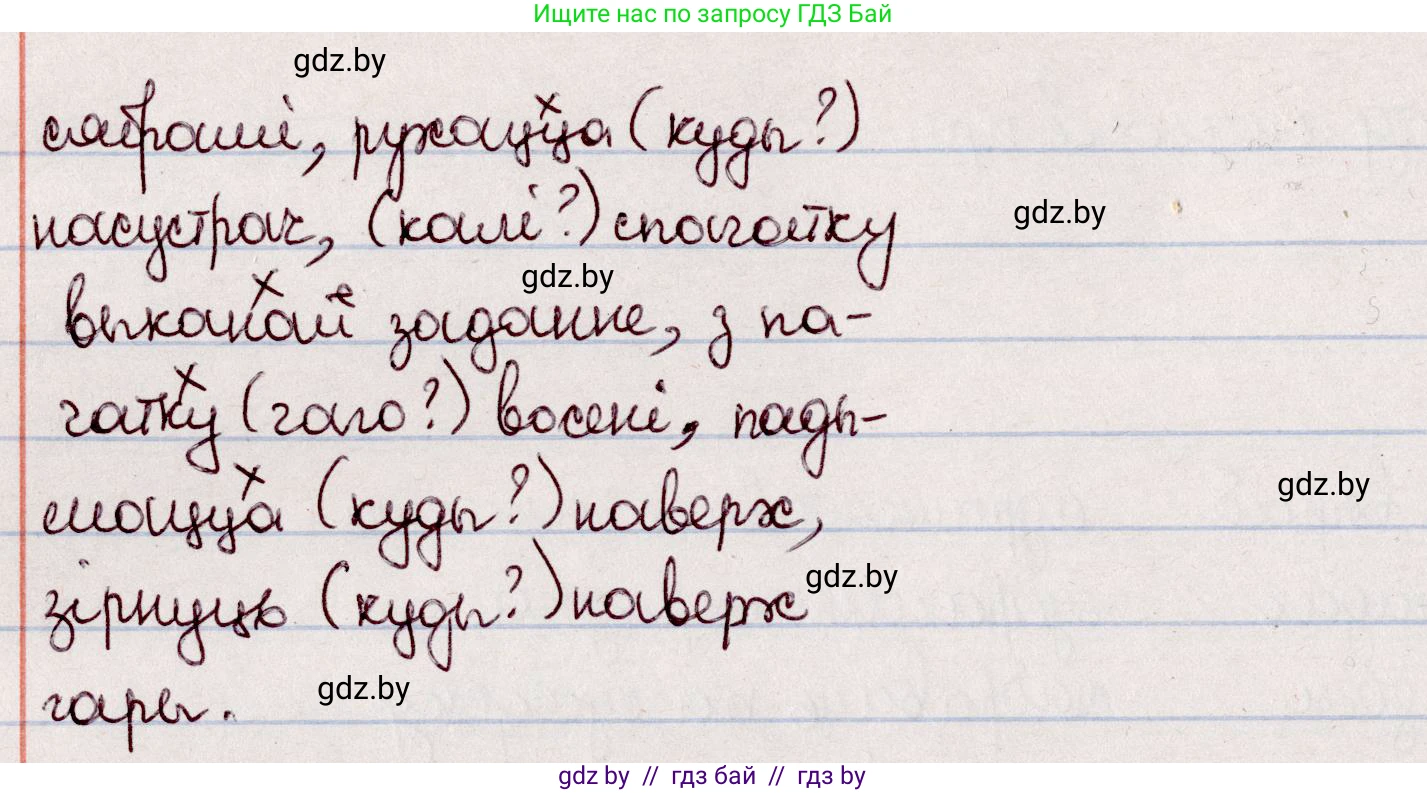 Ищите нас по запросу ГДЗ Бай
gdz.by
сябрамі, рухацца (куды?)
насустрач, (калі?) спачатку
gdz.by
gdz.by
выканай заданне, з па-
чатку (чаго?) восені, пады-
мацца (куды?) наверх,
gdz.by
зірнуць (куды?) наверх
gdz.by
гары.
gdz.by
gdz by // гдз бай // гдз by